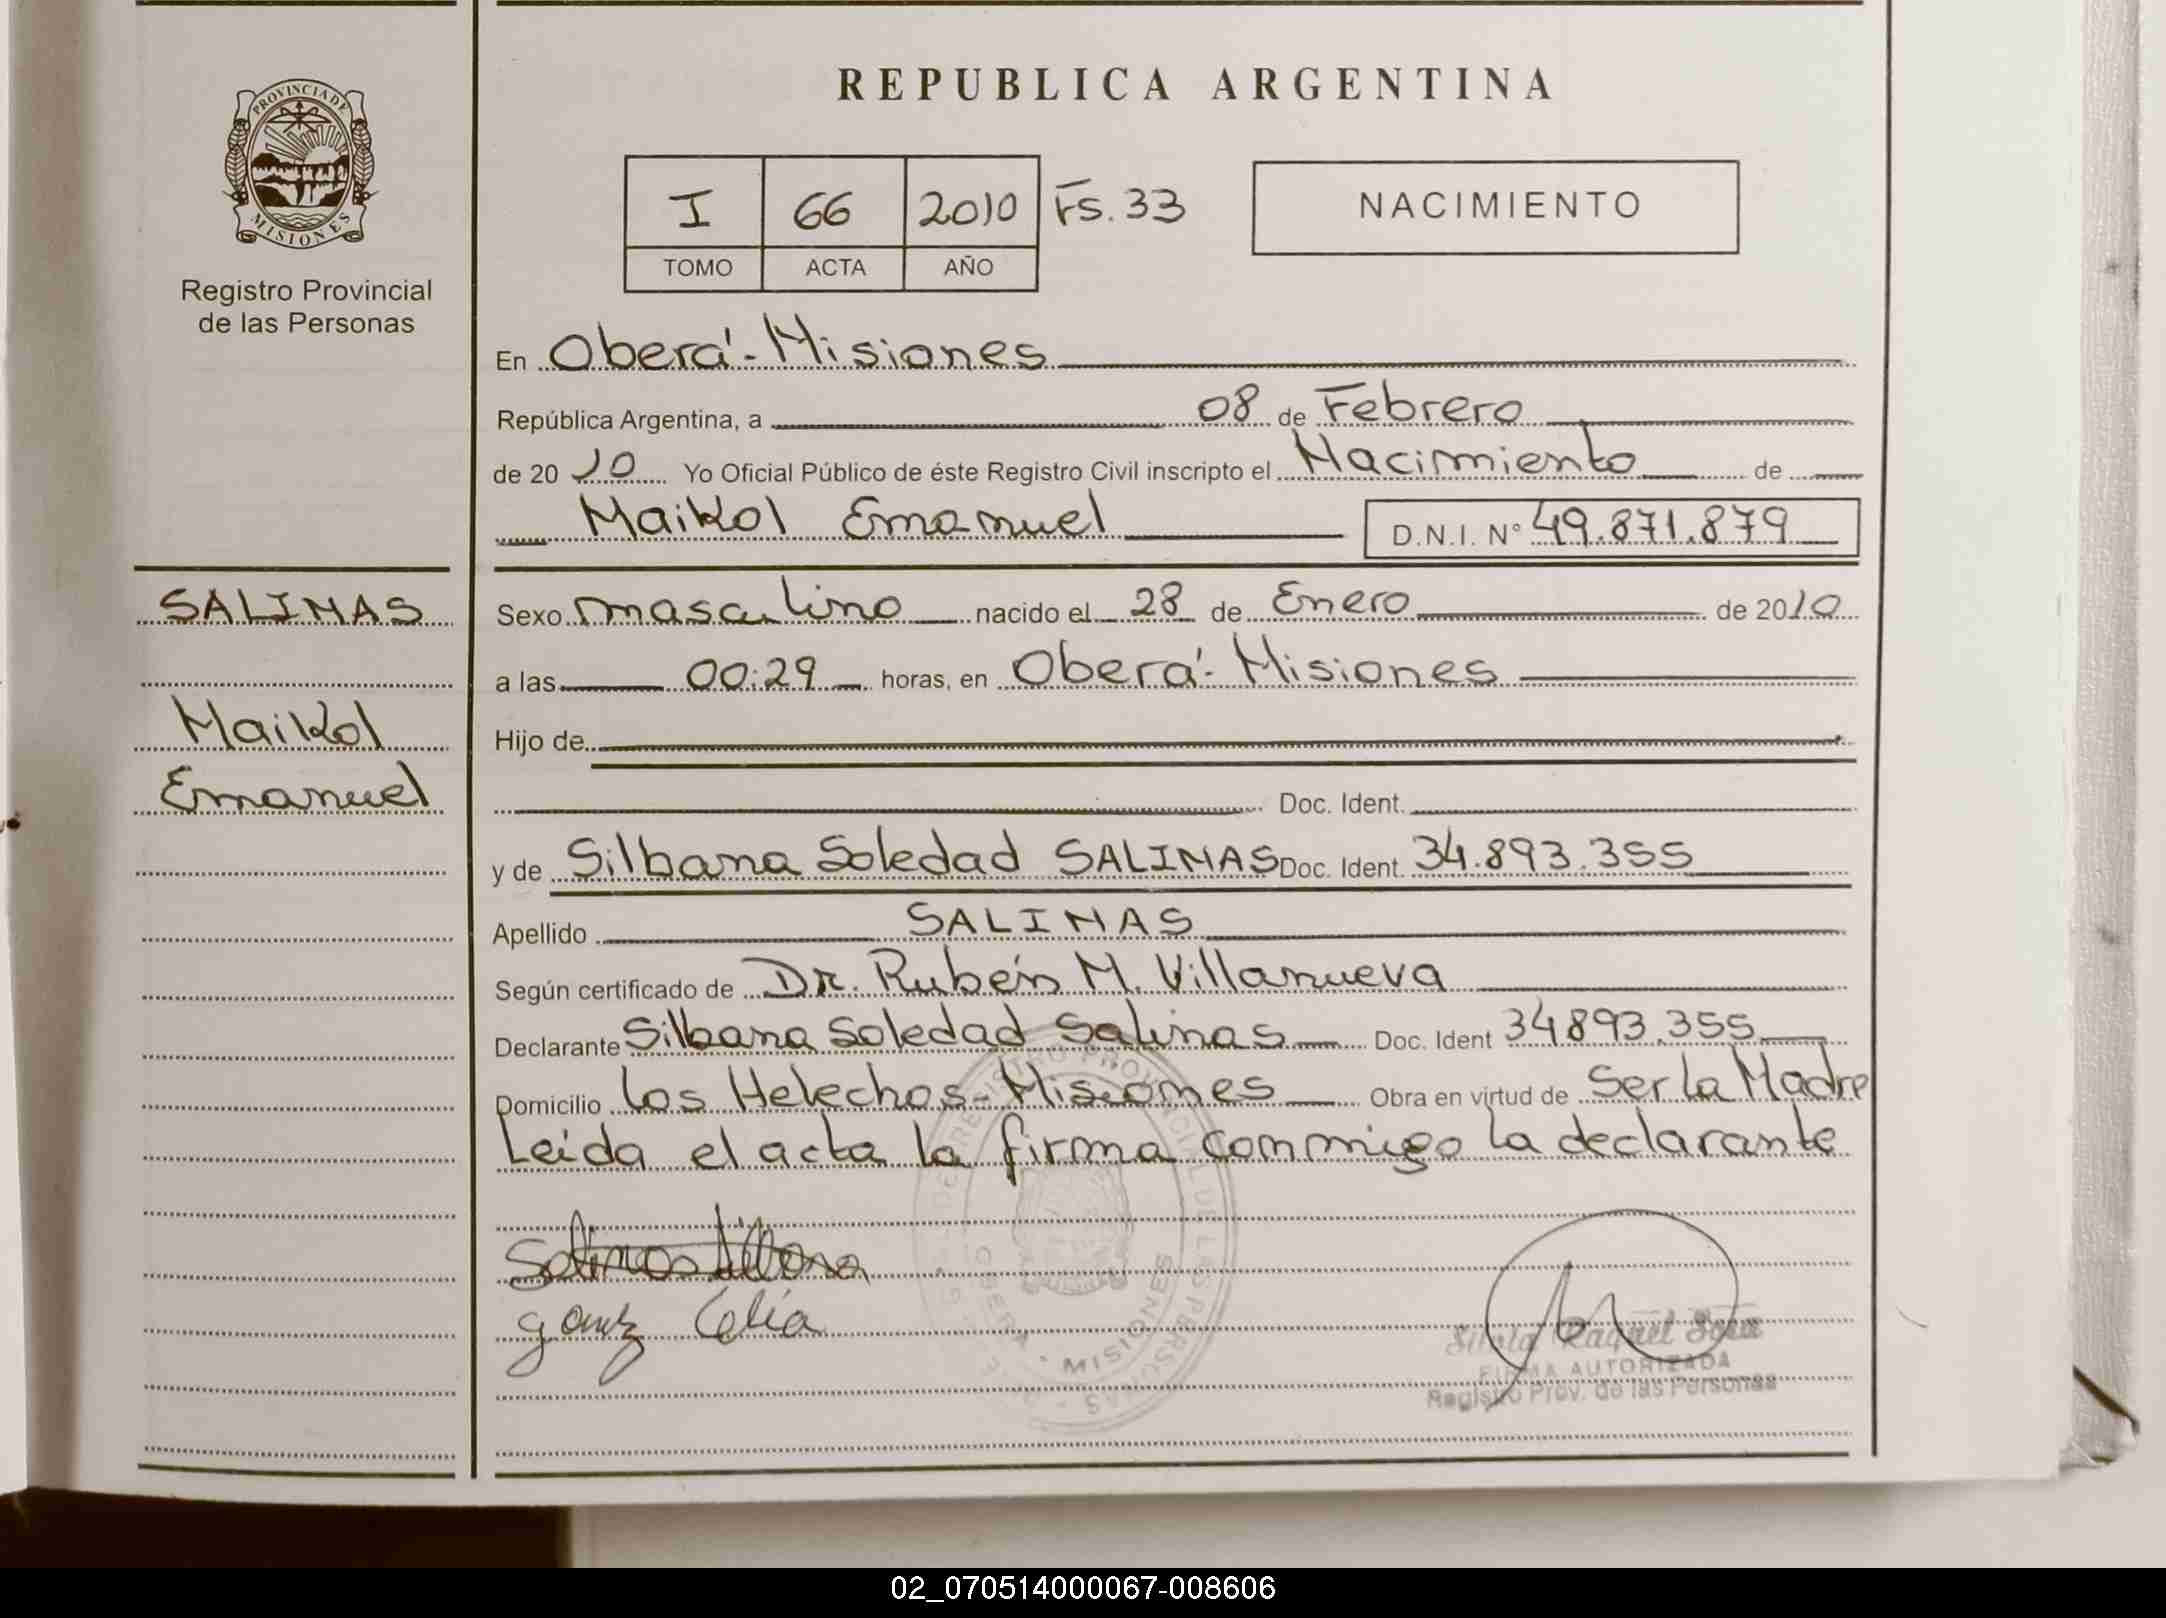 REPUBLICA ARGENTINA
PROVINCIA DE
MISIONES
Registro Provincial
de las Personas
I 66 2010 Fs. 33
TOMO ACTA AÑO
NACIMIENTO
En Oberá - Misiones
República Argentina, a 08 de Febrero
de 20 10 Yo Oficial Público de éste Registro Civil inscripto el Nacimiento de
Maikol Emanuel D.N.I. N° 49.871.879
SALINAS
Maikol
Emanuel
Sexo masculino nacido el 28 de Enero de 2010
a las 00:29 horas, en Oberá - Misiones
Hijo de
Doc. Ident.
y de Silbana Soledad SALINAS Doc. Ident. 34.893.355
Apellido SALINAS
Según certificado de Dr. Rubén M. Villanueva
Declarante Silbana Soledad Salinas Doc. Ident 34893.355
Domicilio Los Helechos - Misiones Obra en virtud de Ser la Madre
Leida el acta la firma conmigo la declarante
Salinas Silbana
gomez Celia
REGISTRO PROVINCIAL DE LAS PERSONAS
OBERA - MISIONES
Raquel
FIRMA AUTORIZADA
Registro Prov. de las Personas
02_070514000067-008606